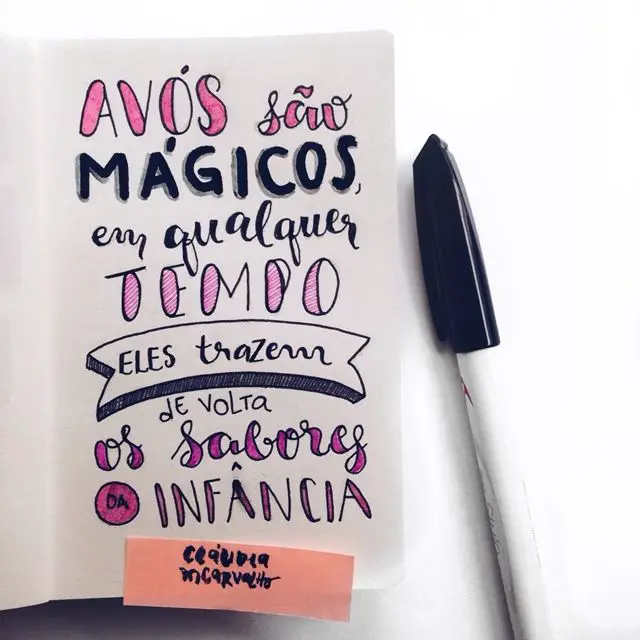 AVÓS são
MÁGICOS,
em qualquer
TEMPO
ELES trazem
DE VOLTA
os sabores
DA INFÂNCIA
CLÁUDIA
MCARVALHO